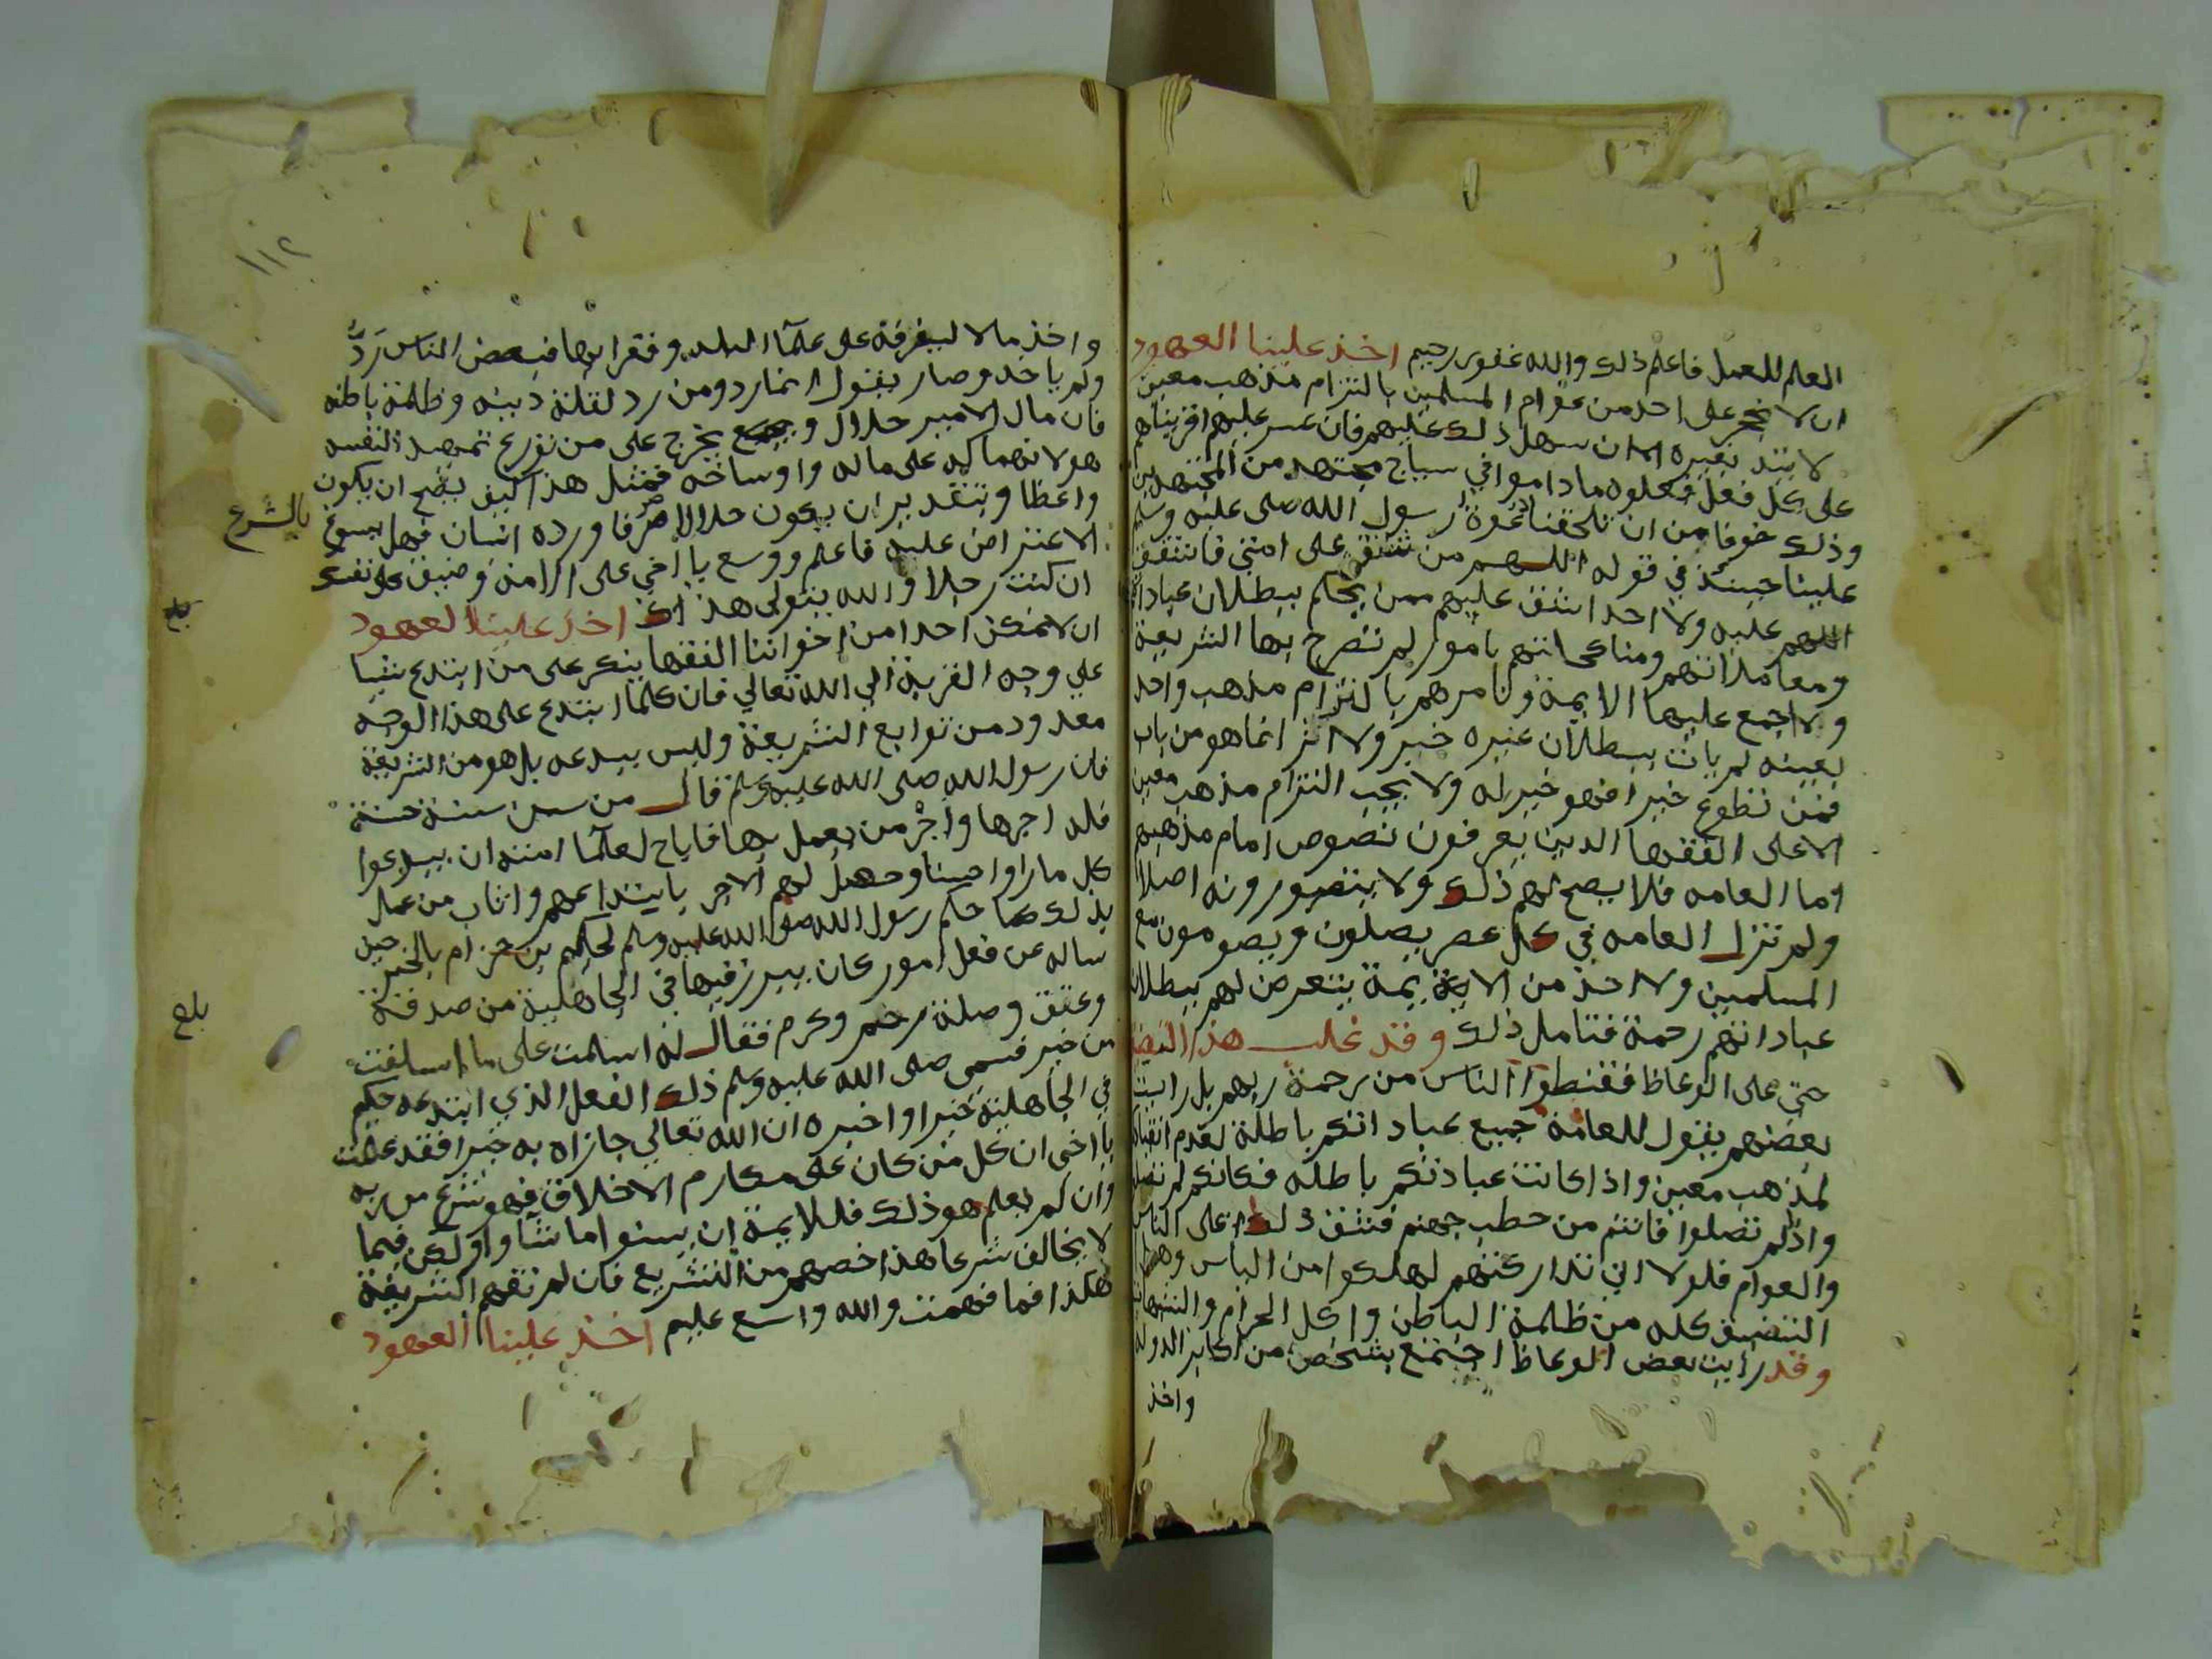 العلم للعمل فاعلم ذلك والله غفور رحيم اخذ علينا العهود
ان لا نحجر على احد من عوام المسلمين بالتزام مذهب معين
لا يتد بغيره الا ان سهل ذلك عليهم فان عسر عليهم اقريناهم
على كل فعل فعلوه ما داموا في سياج مجتهد من المجتهدين
وذلك خوفا من ان تلحقنا دعوة رسول الله صلى عليه وسلم
علينا حينئذ في قوله اللهم من شق على امتي فاشقق
اللهم عليه ولا احد اشق عليهم ممن يحكم ببطلان عباداتهم
ومعاملاتهم ومناكحاتهم بامور لم تصرح بها الشريعة
ولا اجمع عليها الايمة ونامرهم بالتزام مذهب واحد
بعينه لم يات ببطلان غيره خبر ولا اثر انما هو من باب
فمن تطوع خيرا فهو خير له ولا يجب التزام مذهب معين
الا على الفقها الدين يعرفون نصوص امام مذهبهم
اما العامه فلا يصح لهم ذلك ولا يتصورونه اصلا
ولم تزل العامه في كل عصر يصلون ويصومون مع
المسلمين ولا احد من الايمة يتعرض لهم ببطلان
عباداتهم رحمة فتامل ذلك وقد غلب هذا التضيق
حتى على الوعاظ فقنطوا الناس من رحمة ربهم بل رايت
بعضهم يقول للعامة جميع عباداتكم باطلة لعدم انقيادكم
لمذهب معين واذا كانت عبادتكم باطله فكانكم لم تصلوا
واذا لم تصلوا فانتم من حطب جهنم فشق ذلك على الناس
والعوام فلولا اني تداركتهم لهلكوا من الياس وهذا
التضيق كله من ظلمة الباطن واكل الحرام والشبهات
وقد رايت بعض الوعاظ اجتمع بشخص من اكابر الدوله
واخذ
١١٢
واخذ مالا ليفرقه على علما البلد وفقرايها فبعض الناس رد
ولم ياخذ وصار يقول انما رد ومن رد لقلة دينه وظلمة باطنه
فان مال الامير حلال و يخرج على من تورع تمهيدا لنفسه
هو لانهماكه على ماله واوساخه فمثل هذا كيف يصح ان يكون
واعظا وبتقدير ان يكون حلالا صرفا ورده انسان فهل يسوغ بالشرع
الاعتراض عليه فاعلم ووسع يا اخي على الامة وضيق على نفسك
ان كنت رجلا والله يتولى هذاك اخذ علينا العهود
ان لا نمكن احدا من اخواننا الفقها ينكر على من ابتدع شيا
على وجه القربة الى الله تعالى فان كلما ابتدع على هذا الوجه
معدود من توابع الشريعة وليس ببدعه بل هو من الشريعة
فان رسول الله صلى الله عليه وسلم قال من سن سنة حسنة
فله اجرها واجر من يعمل بها فاباح لعلما امته ان يبدعوا
كل ما راوا حسنا وحصل لهم الاجر بابتداعهم واثاب من عمل
بذلك كما حكم رسول الله صلى الله عليه وسلم لحكيم بن حزام بالخير حين
ساله عن فعل امور كان يبرر فيها في الجاهلية من صدقة
وعتق وصلة رحم وكرم فقال له اسلمت على ما اسلفت
من خير فسمى صلى الله عليه وسلم ذلك الفعل الذي ابتدعه حكيم
في الجاهلية خيرا واخبره ان الله تعالي جازاه به خيرا فقد علمت
يا اخى ان كل من كان على مكارم الاخلاق فهو شرع من ربه
وان لم يعلم هو ذلك فللايمة ان يسنوا ما شاوا ولكن فيما
لا يخالف شرعا هذا خصهم من التشريع فان لم تفهم الشريعة
هكذا فما فهمت والله واسع عليم اخذ علينا العهود
بلغ
بلغ